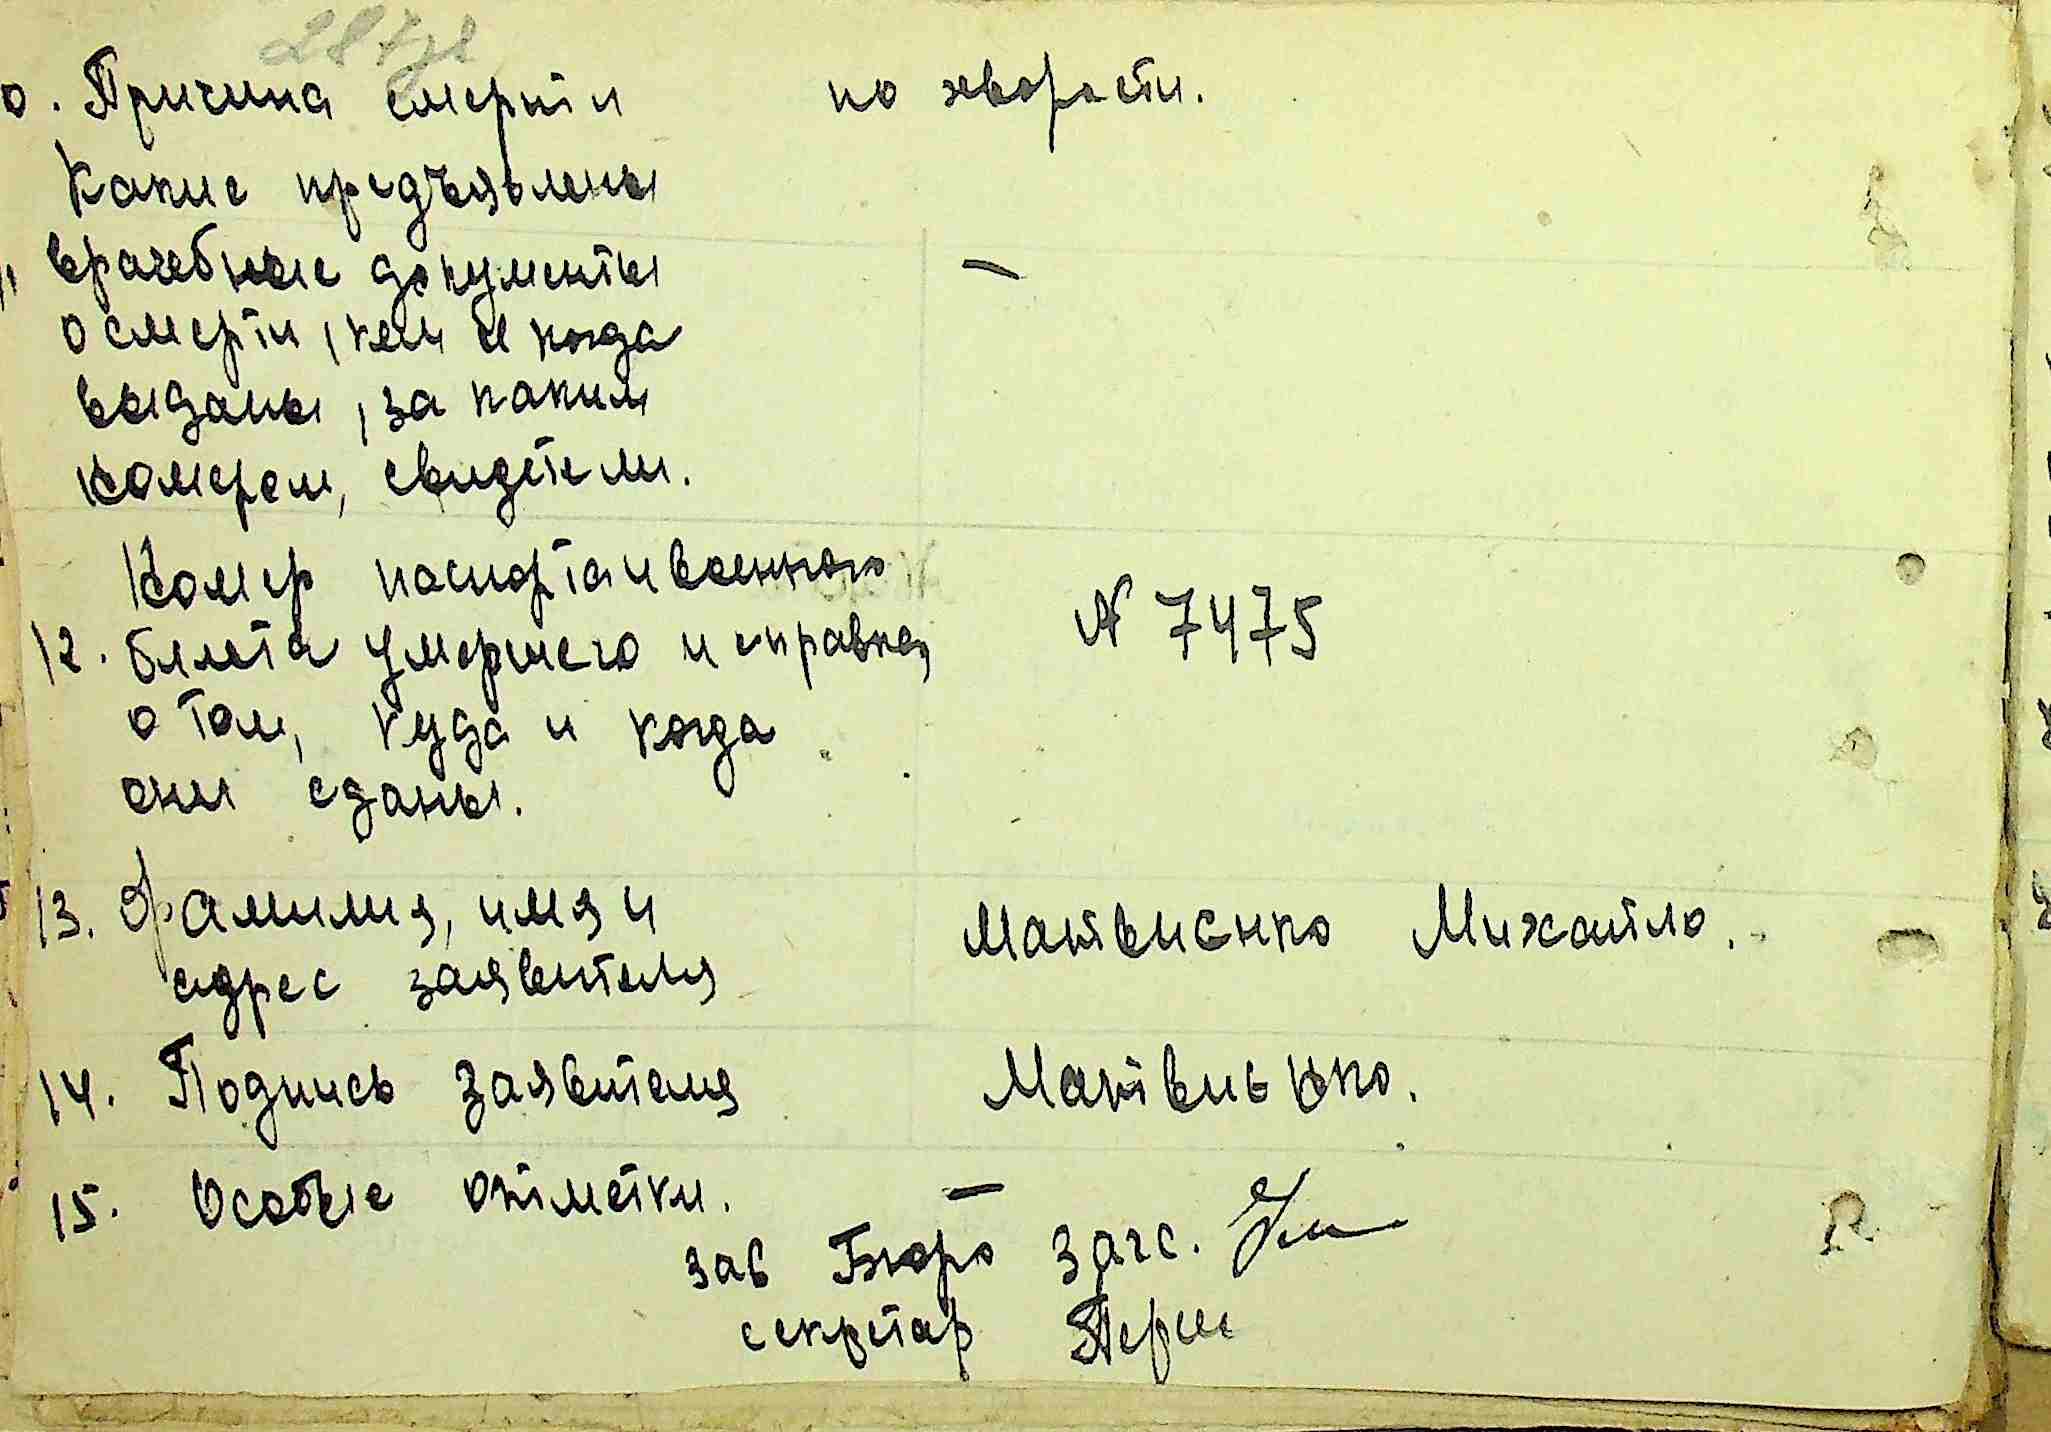 о. Причина смерти по хворасти.
Какие предъявлены
врачебные документы —
о смерти, кем и когда
выданы, за каким
номером, свидетели.
Номер паспорта и военного
12. билета умершего и справка, № 7475
о том, куда и когда
они сданы.
13. Фамилия, имя и Матвиенко Михаило.
адрес заявителя
14. Подпись заявителя Матвиенко.
15. Особые отметки. —
зав Бюро Загс.
секретар